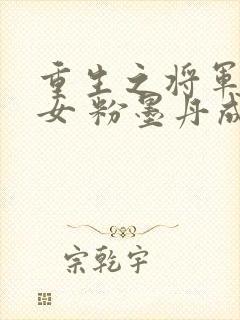 重生之将軍
女 粉墨丹成
宗乾宇